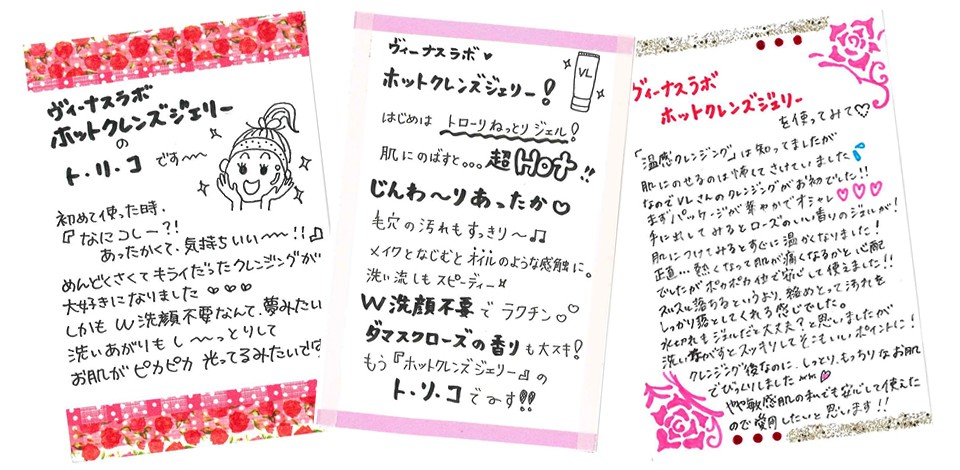 ヴィーナスラボ
ホットクレンズジェリー
の
ト・リ・コ です〜〜
初めて使った時、
『なにコレー?!
あったかくて、気持ちいい〜〜!!』
めんどくさくてキライだったクレンジングが
大好きになりました♡♡♡
しかも W洗顔不要なんて、夢みたい
洗いあがりも し〜〜っとりして
お肌が ピカピカ 光ってるみたいです
ヴィーナスラボ♥
ホットクレンズジェリー!
VL
はじめは トローリねっとりジェル!
肌にのばすと。。。超Hot!!
じんわ〜りあったか♡
毛穴の汚れもすっきり〜♫
メイクとなじむとオイルのような感触に。
洗い流しもスピーディー
W洗顔不要でラクチン♡♡
ダマスクローズの香りも大スキ!
もう『ホットクレンズジェリー』の
ト・リ・コで〜す!!
ヴィーナスラボ
ホットクレンズジェリー
を使ってみて♡
「温感クレンジング」は知ってましたが
肌にのせるのは怖してさけていました
なのでVLさんのクレンジングがお初でした!!
まずパッケージが華やかでオシャレ♡♡♡
手に出してみるとローズのいい香りのジェルが!
肌につけてみるとすぐに温かくなりました!
正直…熱くなって肌が痛くなるかと心配
でしたがポカポカ位で安心して使えました!!
スルスル落ちるというより、絡めとって汚れを
しっかり落としてくれる感じでした。
水切れもジェルだと大丈夫?と思いましたが
洗い流すとスッキリしてそこもいいポイントに!
クレンジング後なのに、しっとり、もっちりなお肌
でびっくりしましたww♡
やや敏感肌の私でも安心して使えた
ので愛用したいと思います!!